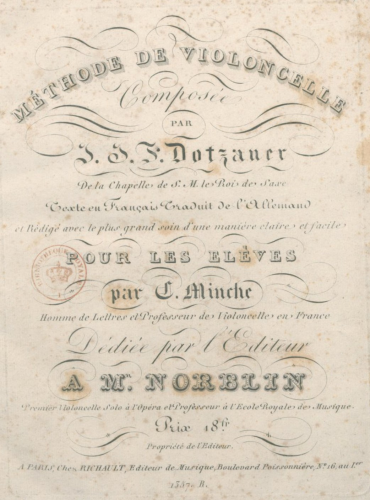 MÉTHODE DE VIOLONCELLE
Composée
PAR
J. J. F. Dotzauer
De la Chapelle de S. M. le Roi de Saxe
Texte en Français Traduit de l'Allemand
et Rédigé avec le plus grand soin d'une manière claire et facile
POUR LES ELÈVES
par C. Minche
Homme de Lettres et Professeur de Violoncelle en France
Dédiée par l'Editeur
A Mr. NORBLIN
Premier Violoncelle Solo à l'Opéra et Professeur à l'Ecole Royale de Musique
Prix 18f.
Propriété de l'Editeur.
A PARIS, Chez RICHAULT, Editeur de Musique, Boulevard Poissonnière, No. 16, au 1er.
R.